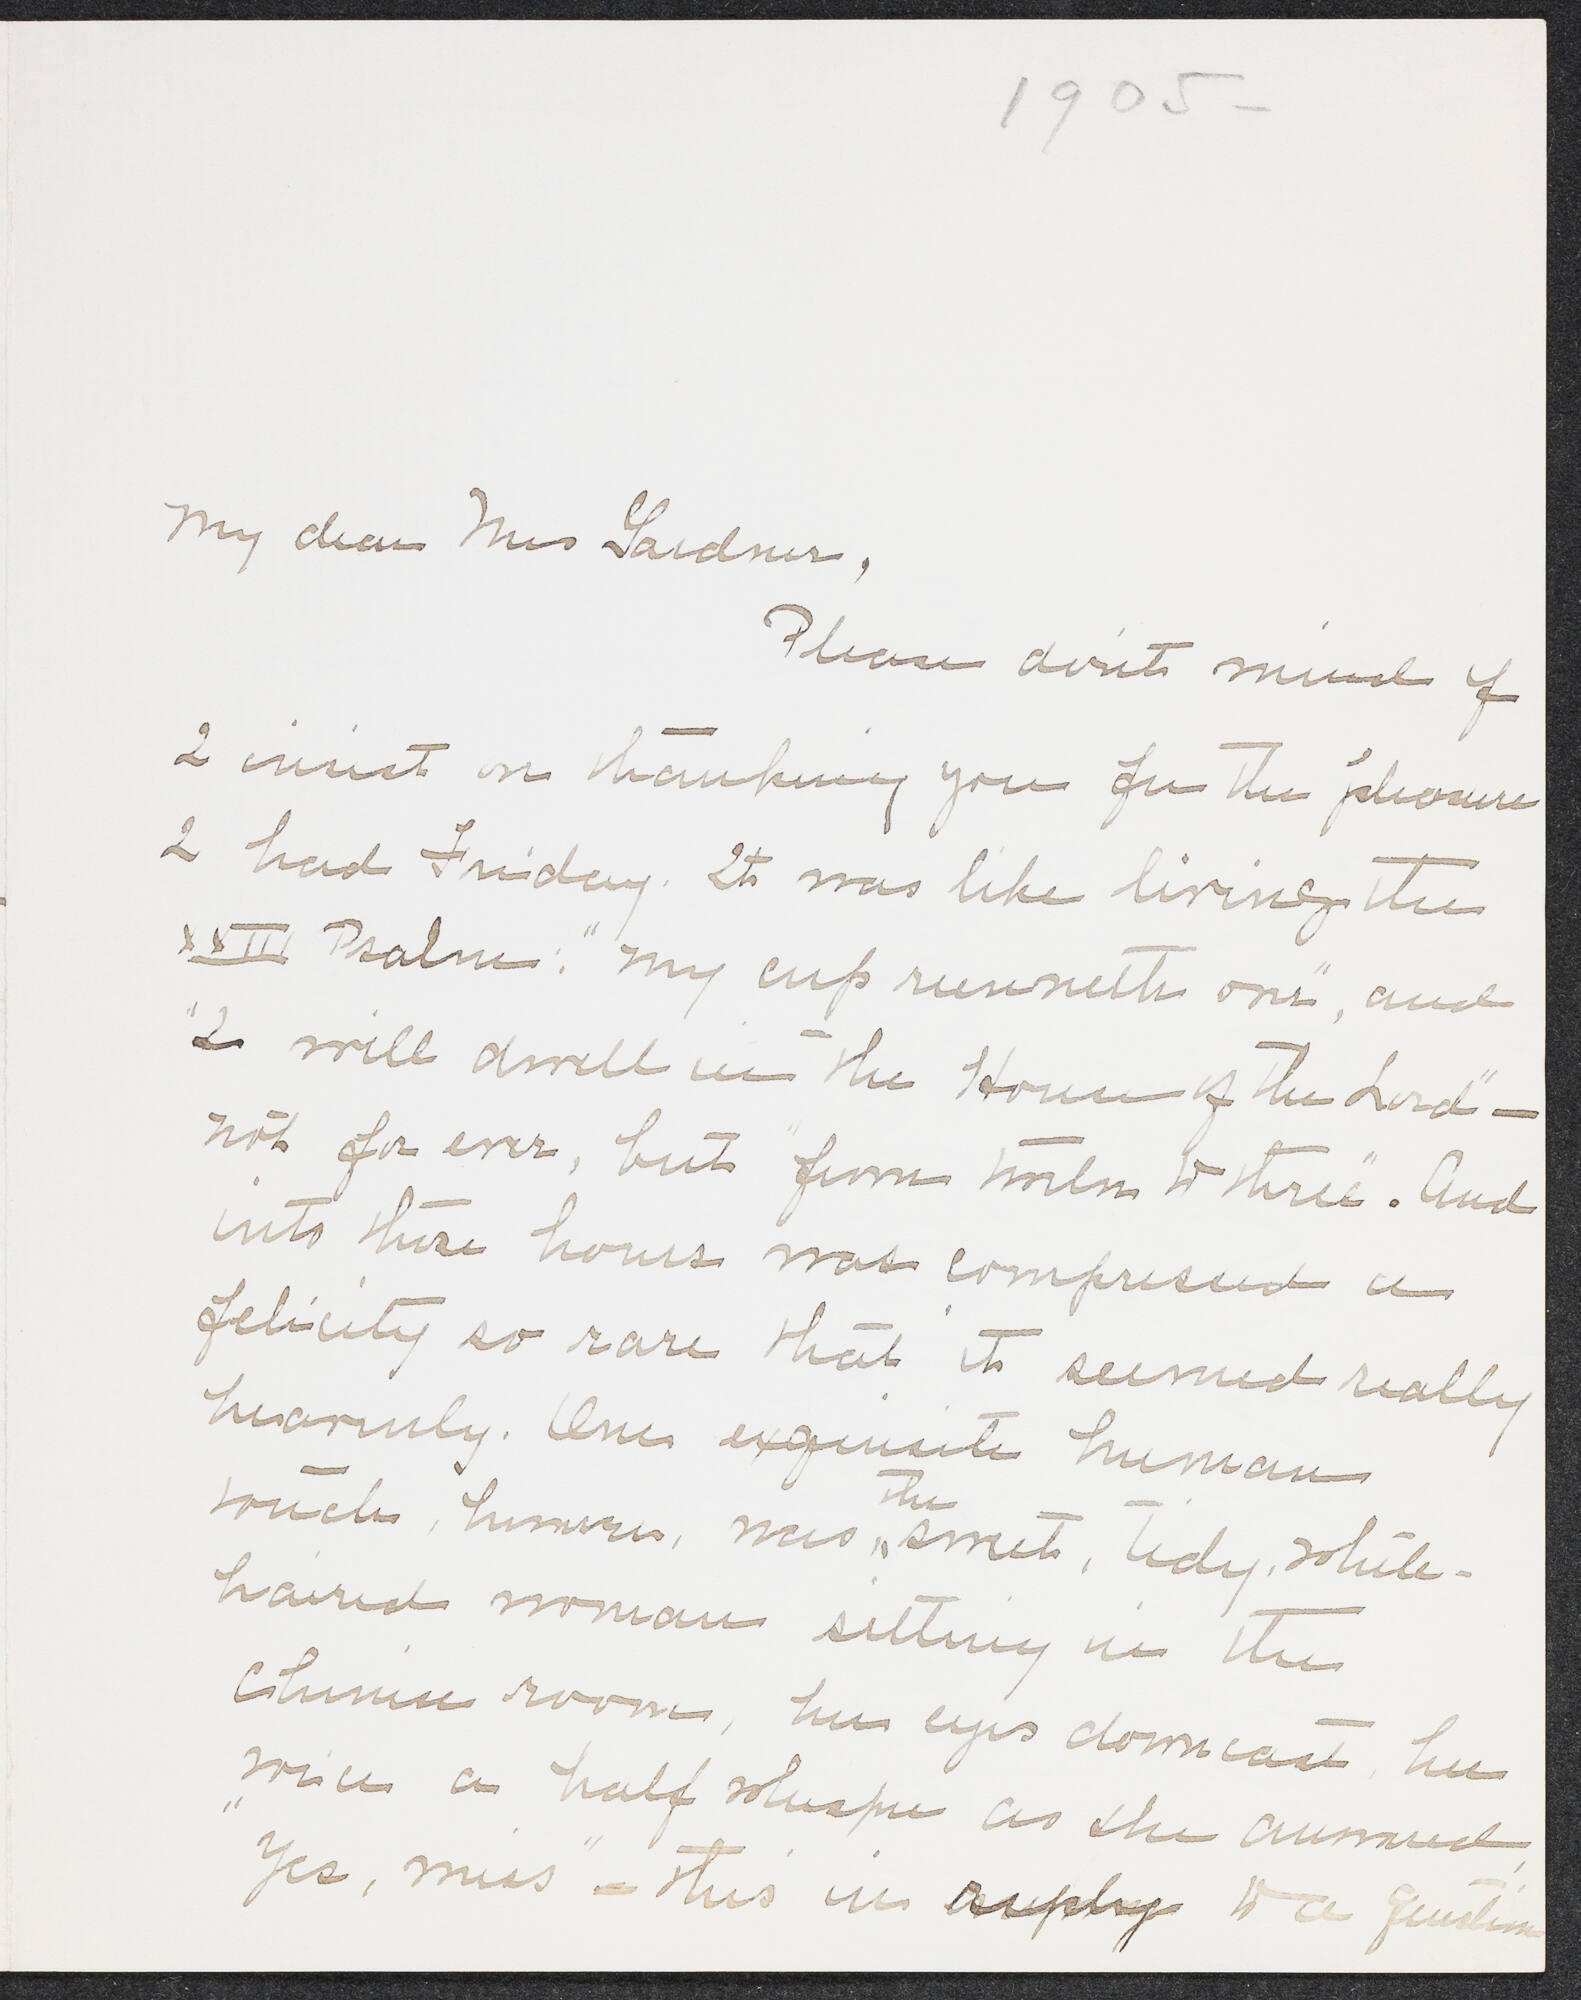 1905-
My dear Mrs Gardner,
Please don't mind if
I insist on thanking you for the pleasure
I had Friday. It was like living the
XXIII Psalm: "My cup runneth over", and
"I will dwell in the House of the Lord" —
not for ever, but "from twelve to three". And
into those hours was compressed a
felicity so rare that it seemed really
heavenly. One exquisite human
touch, however, was the sweet, tidy, white-
haired woman sitting in the
Chinese room, her eyes downcast, her
voice a half whisper as she answered,
"Yes, miss" - this in reply to a question